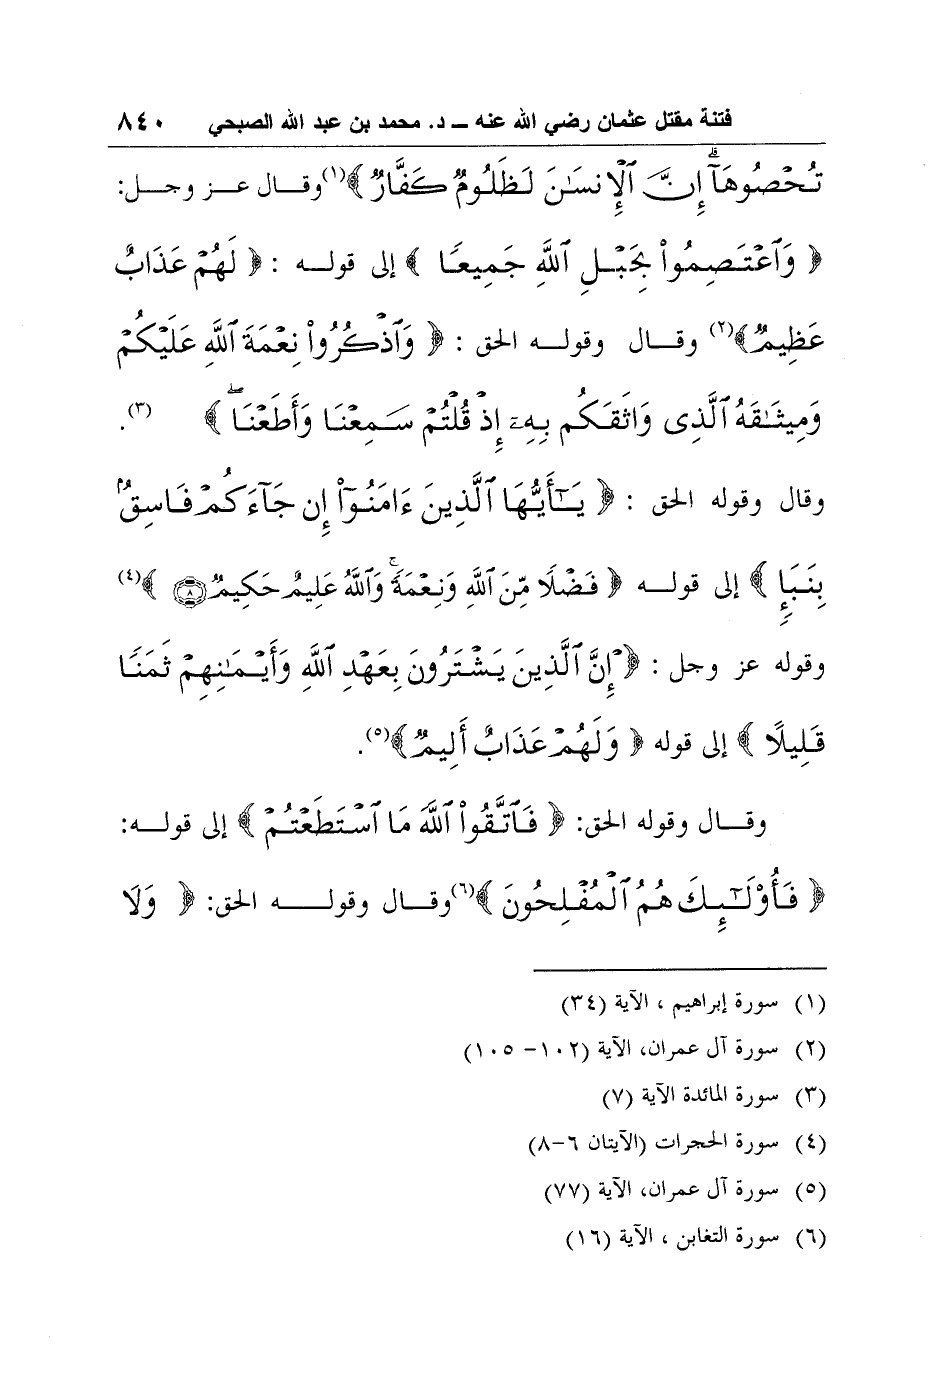 فتنة مقتل عثمان رضي الله عنه ــ د. محمد بن عبد الله الصبحي ٨٤٠
تُحْصُوهَآ إِنَّ ٱلْإِنسَٰنَ لَظَلُومٌ كَفَّارٌ ﴾(١) وقال عز وجل:
﴿ وَٱعْتَصِمُوا۟ بِحَبْلِ ٱللَّهِ جَمِيعًا ﴾ إلى قوله : ﴿ لَهُمْ عَذَابٌ
عَظِيمٌ ﴾(٢) وقال وقوله الحق : ﴿ وَٱذْكُرُوا۟ نِعْمَةَ ٱللَّهِ عَلَيْكُمْ
وَمِيثَٰقَهُ ٱلَّذِى وَاثَقَكُم بِهِۦٓ إِذْ قُلْتُمْ سَمِعْنَا وَأَطَعْنَا ۖ ﴾ (٣).
وقال وقوله الحق : ﴿ يَٰٓأَيُّهَا ٱلَّذِينَ ءَامَنُوٓا۟ إِن جَآءَكُمْ فَاسِقٌۢ
بِنَبَإٍ ﴾ إلى قوله ﴿ فَضْلًا مِّنَ ٱللَّهِ وَنِعْمَةً ۚ وَٱللَّهُ عَلِيمٌ حَكِيمٌ ٨ ﴾(٤)
وقوله عز وجل : ﴿ إِنَّ ٱلَّذِينَ يَشْتَرُونَ بِعَهْدِ ٱللَّهِ وَأَيْمَٰنِهِمْ ثَمَنًا
قَلِيلًا ﴾ إلى قوله ﴿ وَلَهُمْ عَذَابٌ أَلِيمٌ ﴾(٥).
وقال وقوله الحق: ﴿ فَٱتَّقُوا۟ ٱللَّهَ مَا ٱسْتَطَعْتُمْ ﴾ إلى قوله:
﴿ فَأُو۟لَٰٓئِكَ هُمُ ٱلْمُفْلِحُونَ ﴾(٦) وقال وقوله الحق: ﴿ وَلَا
(١) سورة إبراهيم ، الآية (٣٤)
(٢) سورة آل عمران، الآية (١٠٢- ١٠٥)
(٣) سورة المائدة الآية (٧)
(٤) سورة الحجرات (الآيتان ٦-٨)
(٥) سورة آل عمران، الآية (٧٧)
(٦) سورة التغابن ، الآية (١٦)